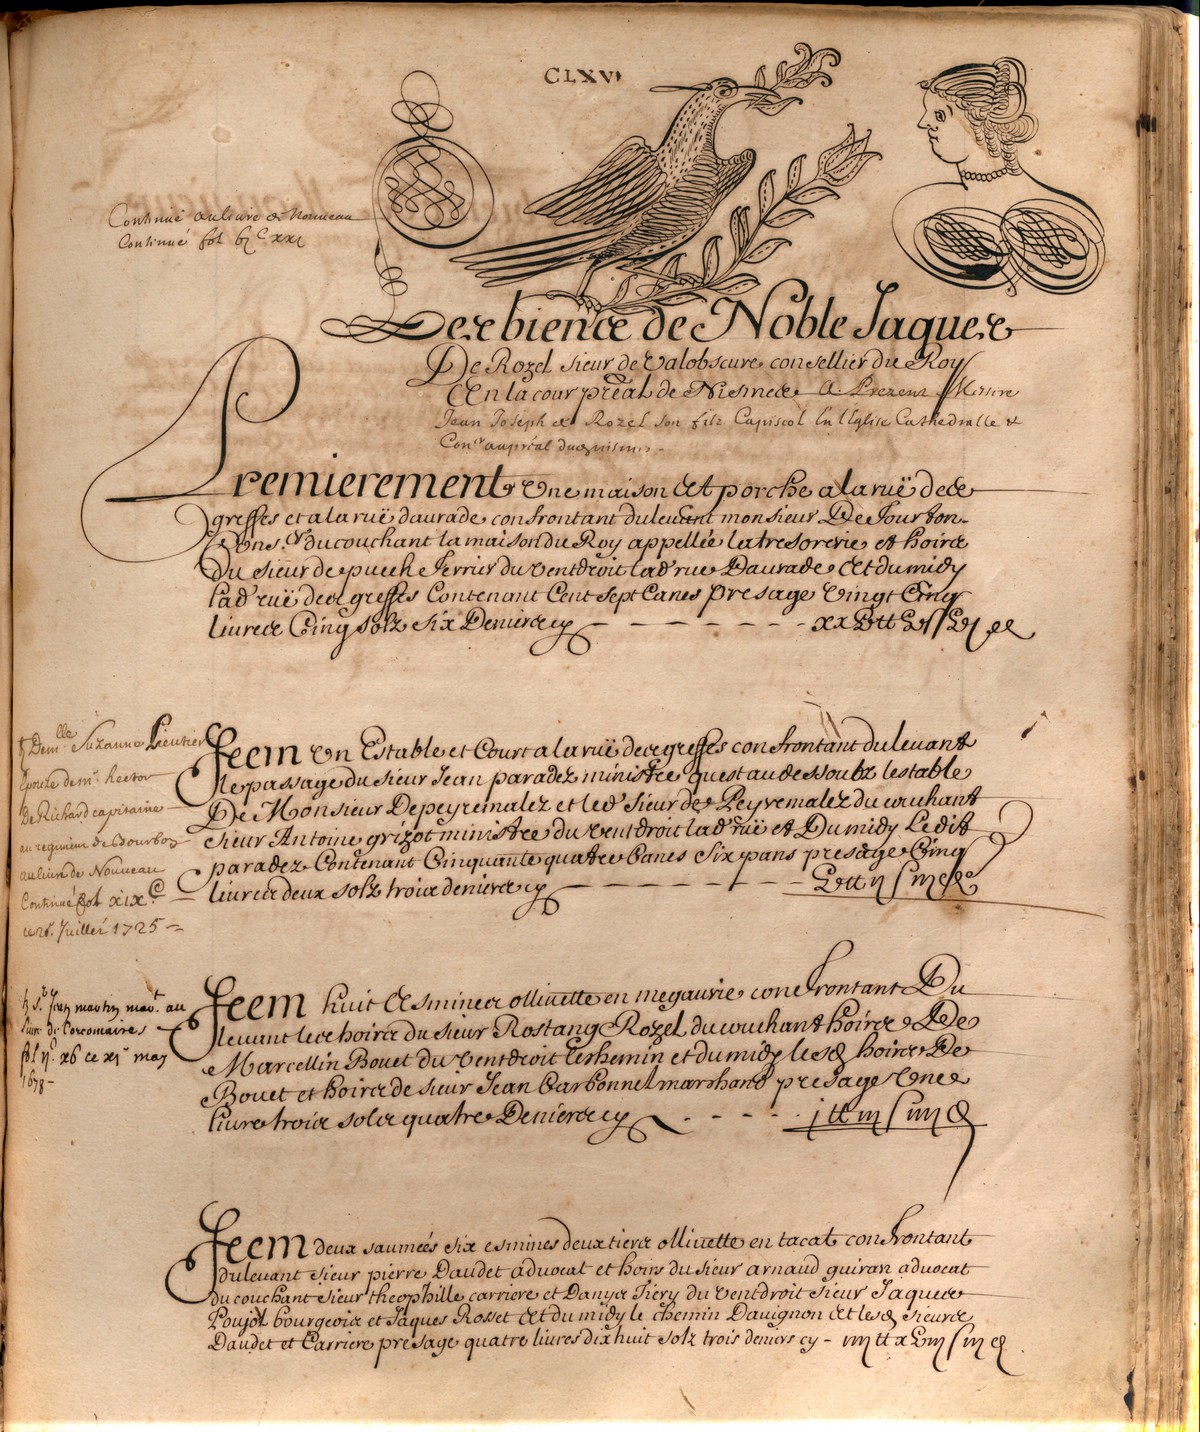 CLXVI
Continué au livre de Nouveau
Continué fol
Les biens de Noble Jaques
De Rozel sieur de Valobscure consellier du Roy
Et en la cour pre̅al de Nismes A Prezent Messire
Jean Joseph de Rozel son filz Capiscol En l'Eglise Cathedralle &
Con.er au pre̅al
Premierement Une maison Et porche a la ruë des
greffes et a la ruë daurade confrontant du levant monsieur De Jourton-
du couchant la maison du Roy appellée la tresorerie et hoirs
Du sieur de puech Ferrier du vent droit lad̅ rue Daurade Et du midy
lad̅ ruë des greffes Contenant Cent sept Canes presage vingt Cinq
livres Cinq solz six Deniers cy
Item Un Estable et Court a la ruë des greffes confrontant du levant
le passage du sieur Jean paradez ministre quest au dessoubz lestable
De Monsieur Depeyremalez et led̅ sieur de Peyremalez du couchant
sieur Antoine grizot ministre du vent droit lad̅ ruë et Du midy Ledit
paradez Contenant Cinquante quatre Canes six pans presage Cinq
livres deux solz trois deniers cy
Dem.lle Suzanne Lieutier
Epouze de mr. hector
De Richard capitaine
au regiment de Bourbon
au livre de Nouveau
Continué fol xix C
ce 28. Juillet 1725
Item huit Esmines ollivette en megaurie confrontant Du
levant les hoirs du sieur Rostang Rozel du couchant hoirs De
Marcellin Bouet du vent droit Le chemin et du midy lesd̅ hoirs De
Bouet et hoirs de sieur Jean Carbonnel marchand presage Une
livre trois solz quatre Deniers cy j tt iij ſ iiij d
sr Jean martin mart. au
livre de Corcomaires
ce xj may
Item deux saumées six esmines deux tiers ollivette en tacat confrontant
du levant sieur pierre Daudet advocat et hoirs du sieur arnaud guiran advocat
du couchant sieur theophille carriere et Danys Fiery du vent droit sieur Jaques
Poujol bourgeois et Jaques Rosset Et du midy le chemin Davignon et lesd̅ sieurs
Daudet et Carriere presage quatre livres dix huit solz trois deniers cy - iiij tt x viij ſ iij d